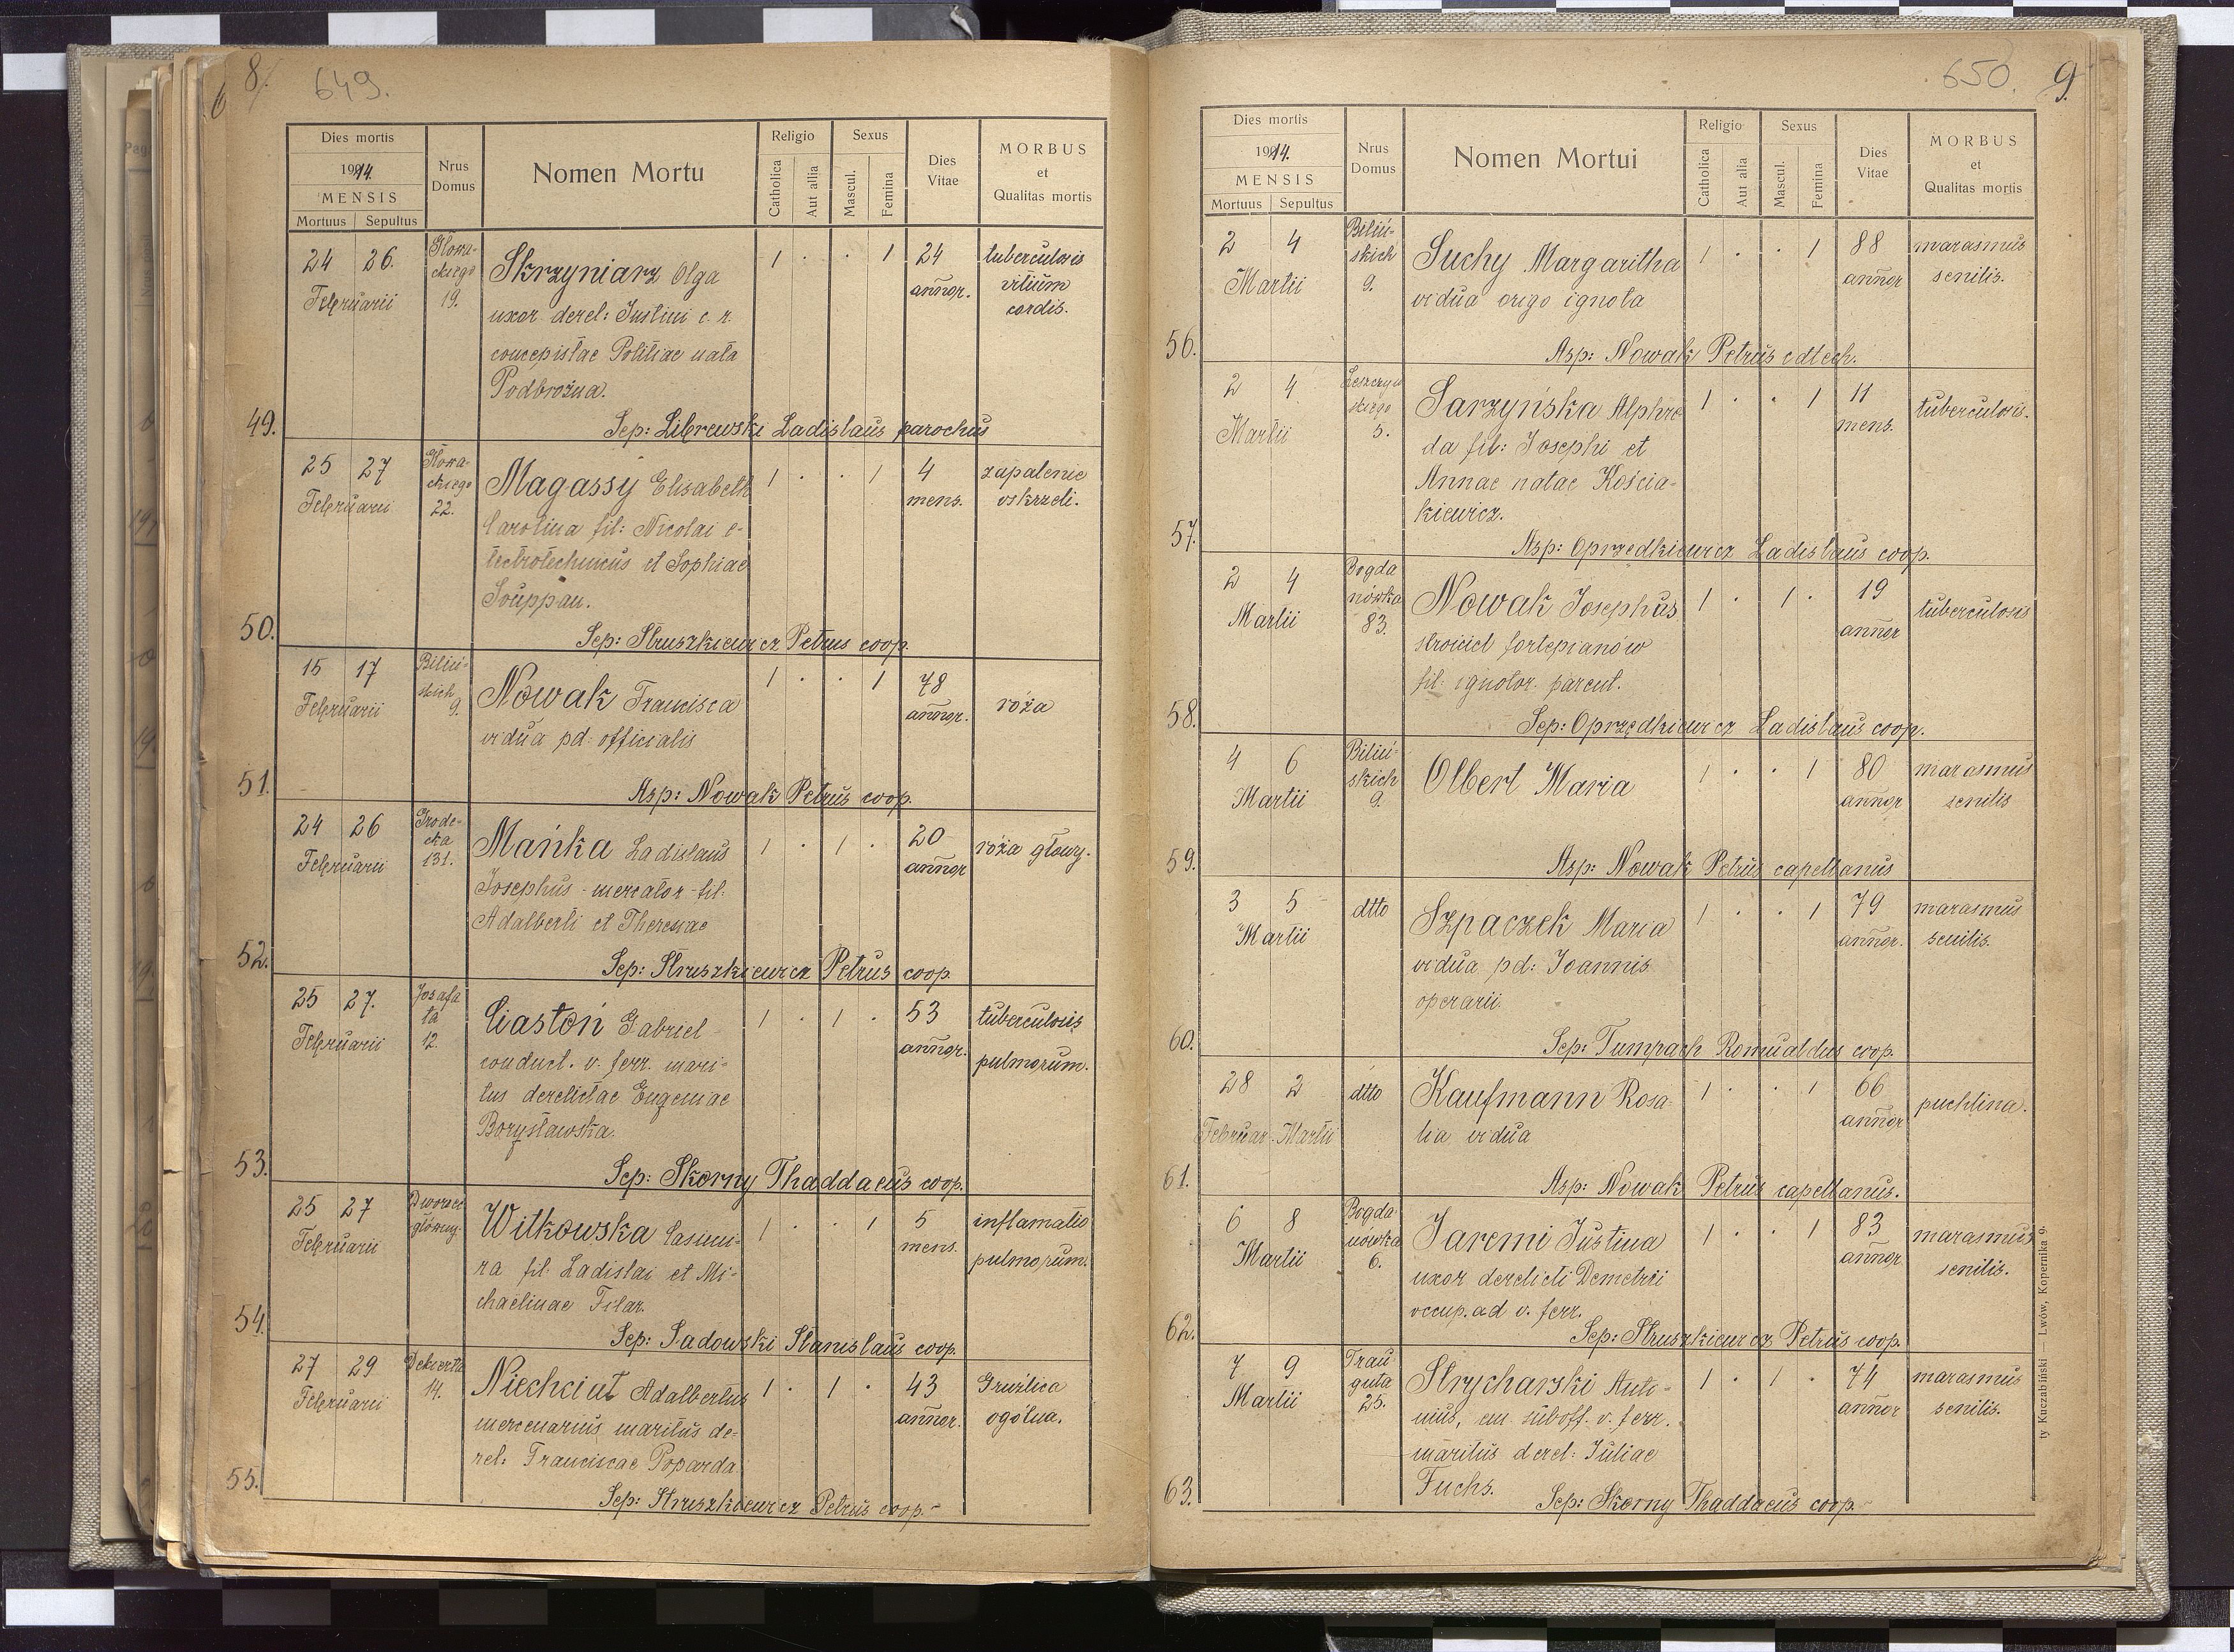 8.
6
649.
Dies mortis
1914.
MENSIS
Mortuus Sepultus
Nrus Domus
Nomen Mortu
Religio
Catholica
Aut allia
Sexus
Mascul.
Femina
Dies Vitae
MORBUS
et
Qualitas mortis
49.
24 26.
Februarii
Głowa-
ckiego
19.
Skrzyniarz Olga
uxor derel: Justini c. r.
concepistae Politiae nata
Podbrożna.
1 . . 1
24
annor.
tuberculosis
vitium
cordis.
Sep: Librewski Ladislaus parochus
50.
25 27
Februarii
Głowa-
ckiego
22.
Magassy Elisabeth
Carolina fil: Nicolai e-
lectrotechnicus et Sophiae
Souppan.
1 . . 1
4
mens.
zapalenie
oskrzeli.
Sep: Struszkiewicz Petrus coop.
51.
15 17
Februarii
Biliń-
skich
9.
Nowak Francisca
vidua pd: officialis
1 . . 1
78
annor.
róża
Asp: Nowak Petrus coop.
52.
24 26
Februarii
Grode-
cka
131.
Mańka Ladislaus
Josephus - mercator - fil:
Adalberti et Theresiae
1 . 1 .
20
annor
róża głowy.
Sep: Struszkiewicz Petrus coop.
53.
25 27.
Februarii
Jozafa
ta
12.
Ciastoń Gabriel
conduct. v. ferr. mari-
tus derelictae Eugeniae
Borysławska.
1 . 1 .
53
annor.
tuberculosis
pulmorum.
Sep: Skorny Thaddaeus coop.
54.
25 27
Februarii
Dworzec
główny.
Witkowska Casimi-
ra fil: Ladislai et Mi-
chaelinae Filar.
1 . . 1
5
mens.
inflamatio
pulmorum.
Sep: Sadowski Stanislaus coop.
55.
27 29
Februarii
Dekierta
14.
Niechciał Adalbertus
mercenarius maritus de-
rel: Franciscae Poparda
1 . 1 .
43
annor.
Gruźlica
ogólna.
Sep: Struszkiewicz Petrus coop.
650.
9.
Dies mortis
1914.
MENSIS
Mortuus Sepultus
Nrus Domus
Nomen Mortui
Religio
Catholica
Aut alia
Sexus
Mascul.
Femina
Dies Vitae
MORBUS
et
Qualitas mortis
56.
2 4
Martii
Biliń-
skich
9.
Suchy Margaritha
vidua origo ignota
1 . . 1
88
annor
marasmus
senilis.
Asp: Nowak Petrus
57.
2 4
Martii
Leszczyń
skiego
5.
Sarzyńska Alphre
da fil: Josephi et
Annae natae Kościa-
kiewicz.
1 . . 1
11
mens.
tuberculosis.
Asp: Oprzędkiewicz Ladislaus coop.
58.
2 4
Martii
Bogda
nówka
83.
Nowak Josephus
stroiciel fortepianów
fil: ignotor. parent.
1 . 1 .
19
annor
tuberculosis
Sep: Oprzędkiewicz Ladislaus coop.
59.
4 6
Martii
Biliń-
skich
9.
Olbert Maria
1 . . 1
80
annor
marasmus
senilis
Asp: Nowak Petrus capellanus
60.
3 5
Martii
dtto
Szpaczek Maria
vidua pd: Joannis
operarii.
1 . . 1
79
annor.
marasmus
senilis.
Sep: Tumpach Romualdus coop.
61.
28 2
Februar. Martii
dtto
Kaufmann Rosa-
lia vidua
1 . . 1
66
annor
puchlina.
Asp: Nowak Petrus capellanus.
62.
6 8
Martii
Bogda
nówka
6.
Jaremi Justina
uxor derelicti Demetrii
occup. ad v. ferr.
1 . . 1
83
annor
marasmus
senilis.
Sep: Struszkiewicz Petrus coop.
63.
7 9
Martii
Trau
guta
25.
Strycharski Anto-
nius, em. suboff. v. ferr.
maritus derel: Juliae
Fuchs.
1 . 1 .
74
annor
marasmus
senilis.
Sep: Skorny Thaddaeus coop.
ty Kuczabiński — Lwów, Kopernika 9.